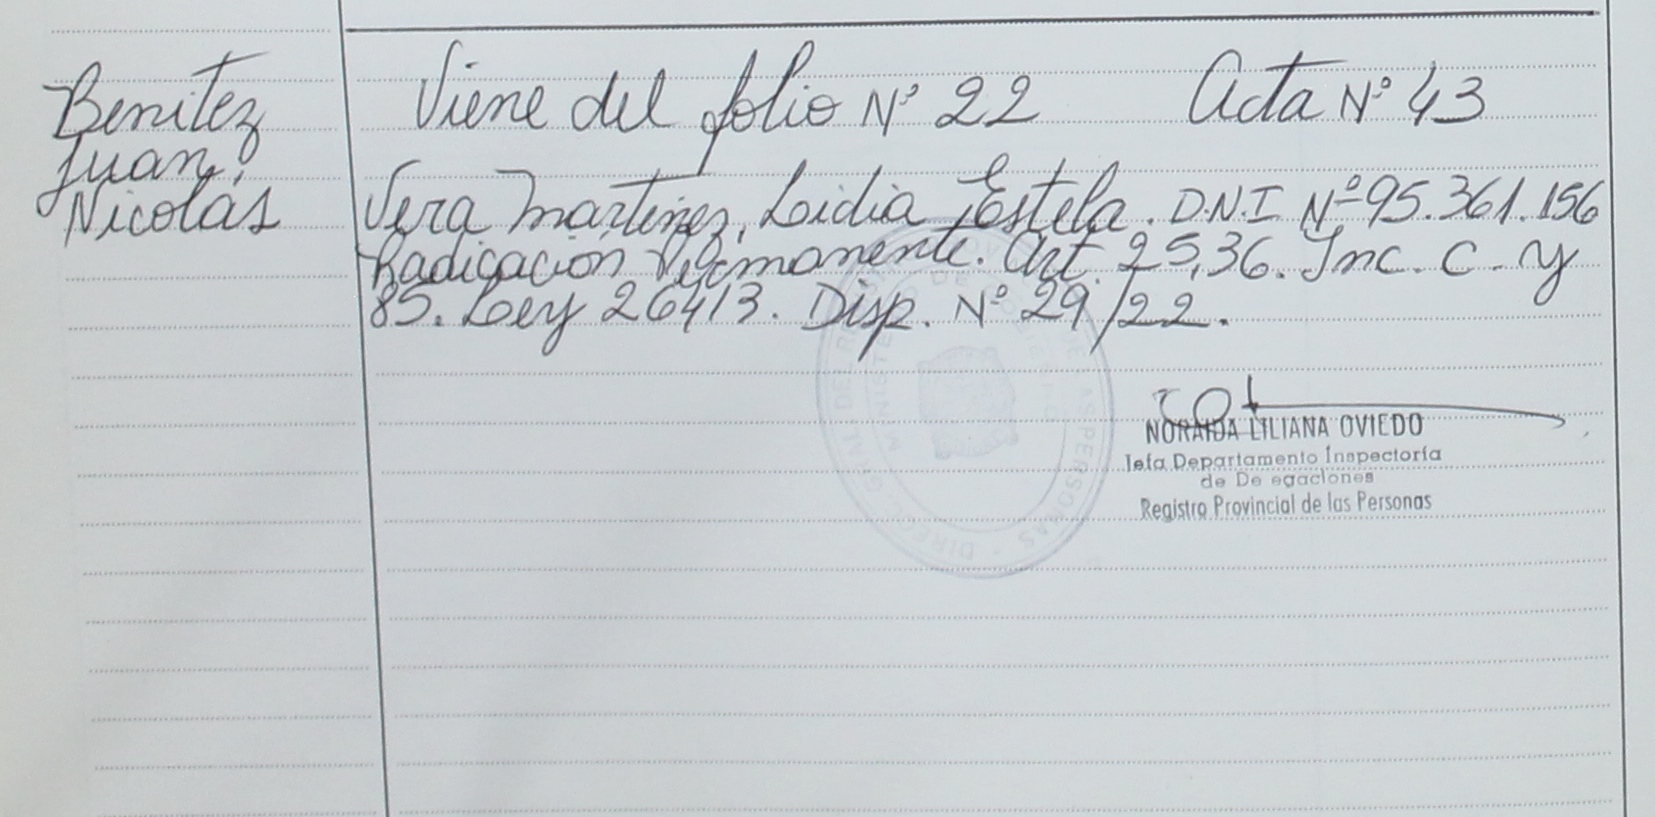 Benitez
Juan
Nicolás
Viene del folio Nº 22 Acta Nº 43
Vera Martinez, Lidia Estela. D.N.I Nº 95.361.156
Radicación Permanente. Art. 25,36. Inc. C. y
85. Ley 26413. Disp. Nº 29/22.
NORAIDA LILIANA OVIEDO
Jefa Departamento Inspectoría
de De egaciones
Registro Provincial de las Personas